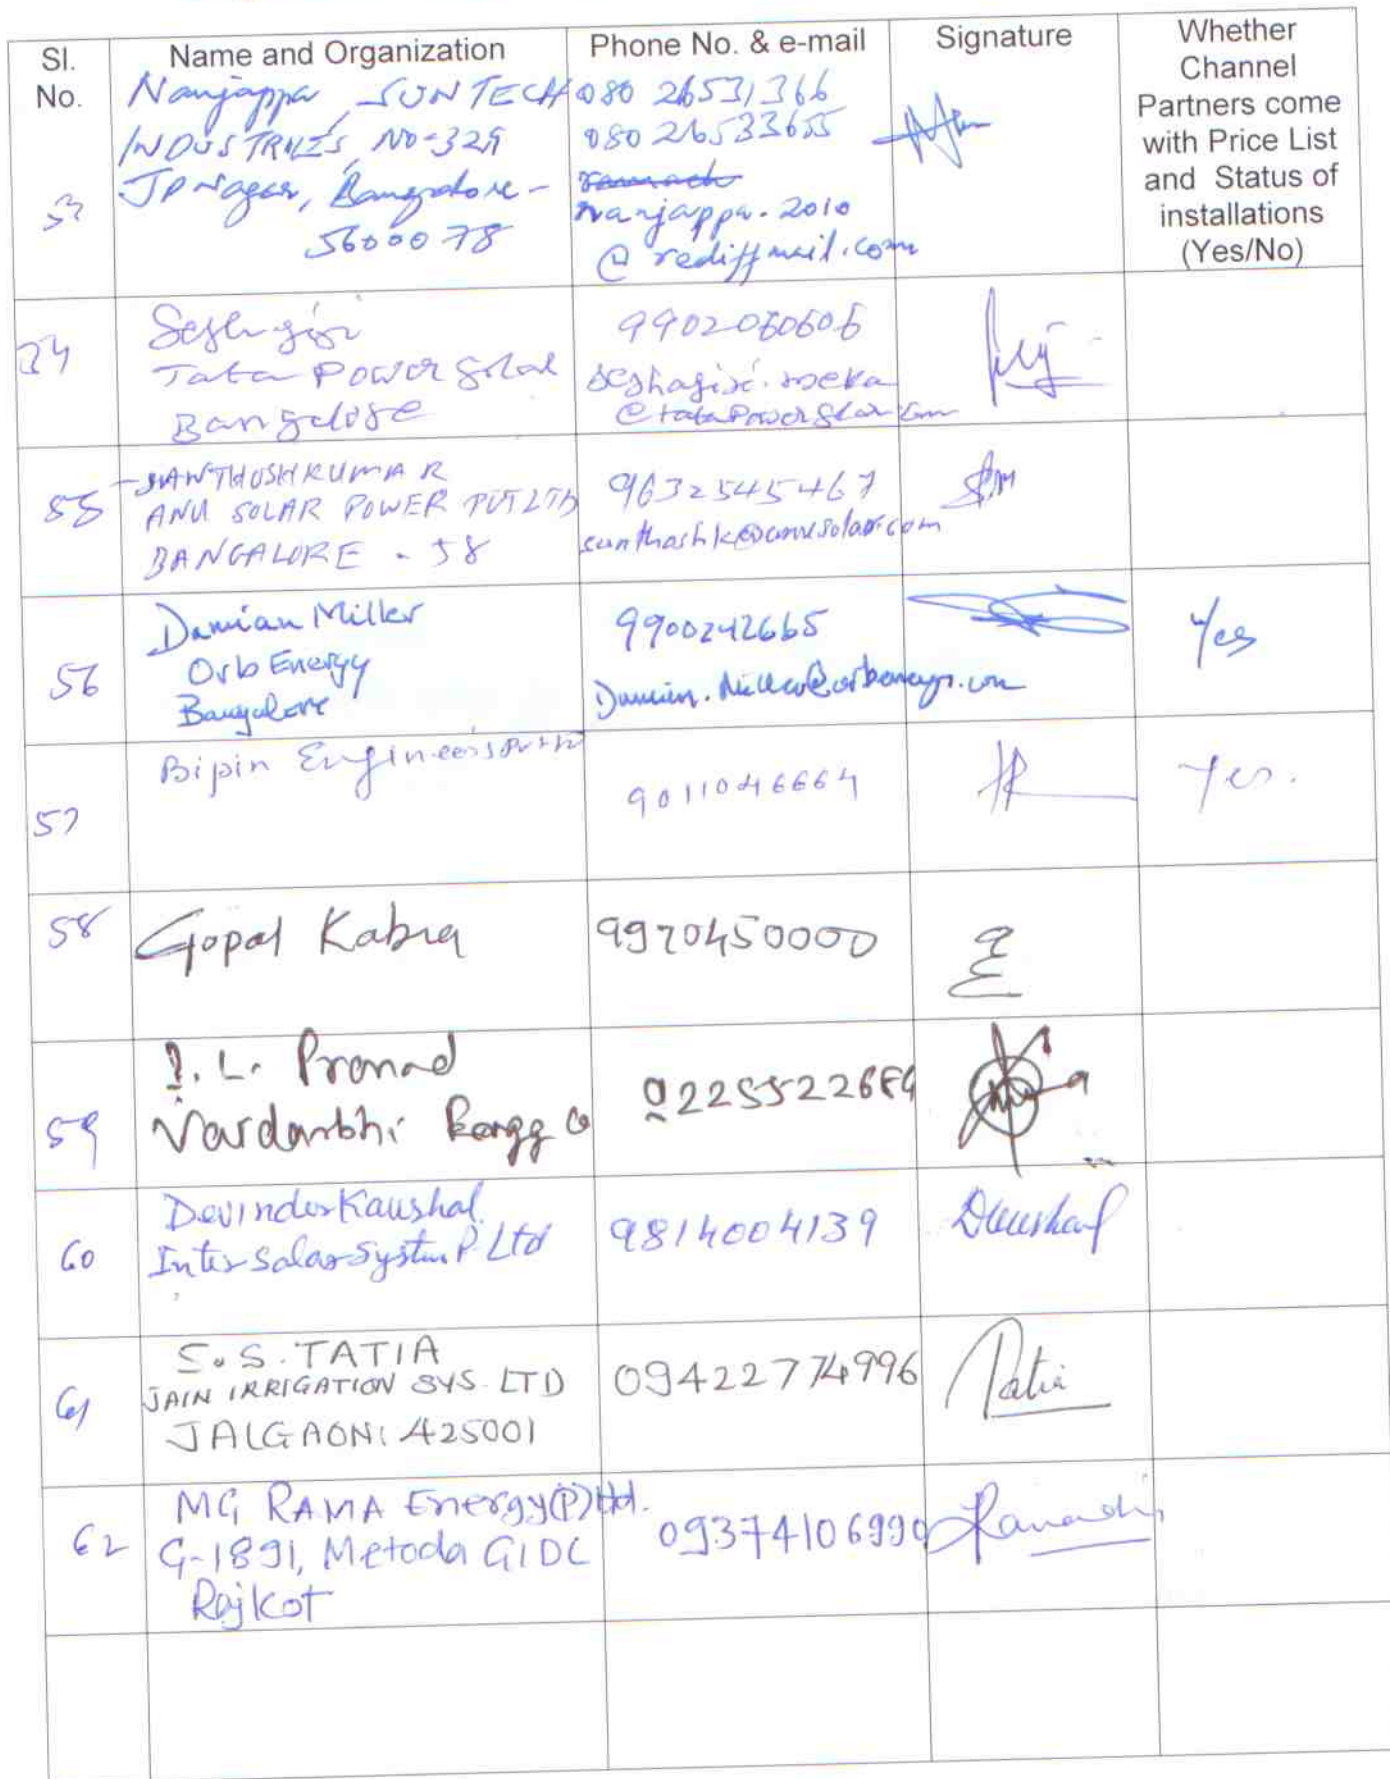 Sl. No.
Name and Organization
Phone No. & e-mail
Signature
Whether
Channel
Partners come
with Price List
and Status of
installations
(Yes/No)
53
Nanjappa, SUNTECH
INDUSTRIES, NO-329
JP Nagar, Bangalore -
5600078
080 26531366
080 26533655
nanjappa.2010
@ rediffmail.com
54
Seshgiri
Tata Power Solar
Bangalore
9902060606
seshagiri.meka
@tataPowerSolar.com
55
SANTHOSHKUMAR
ANU SOLAR POWER PVT LTD
BANGALORE - 58
9632545467
santhoshk@anusolar.com
56
Damian Miller
Orb Energy
Bangalore
9900242665
Damian.Miller@orbenergy.com
Yes
57
Bipin Engineers Pvt Ltd
9011046664
Yes.
58
Gopal Kabra
9970450000
59
L. Pramod
0225522684
60
Devinder Kaushal
Inter Solar System P. Ltd
9814004139
DKaushal
61
S.S. TATIA
JAIN IRRIGATION SYS. LTD
JALGAON: 425001
09422774996
Tatia
62
MG RAMA Energy(P)Ltd.
G-1891, Metoda GIDC
Rajkot
09374106990